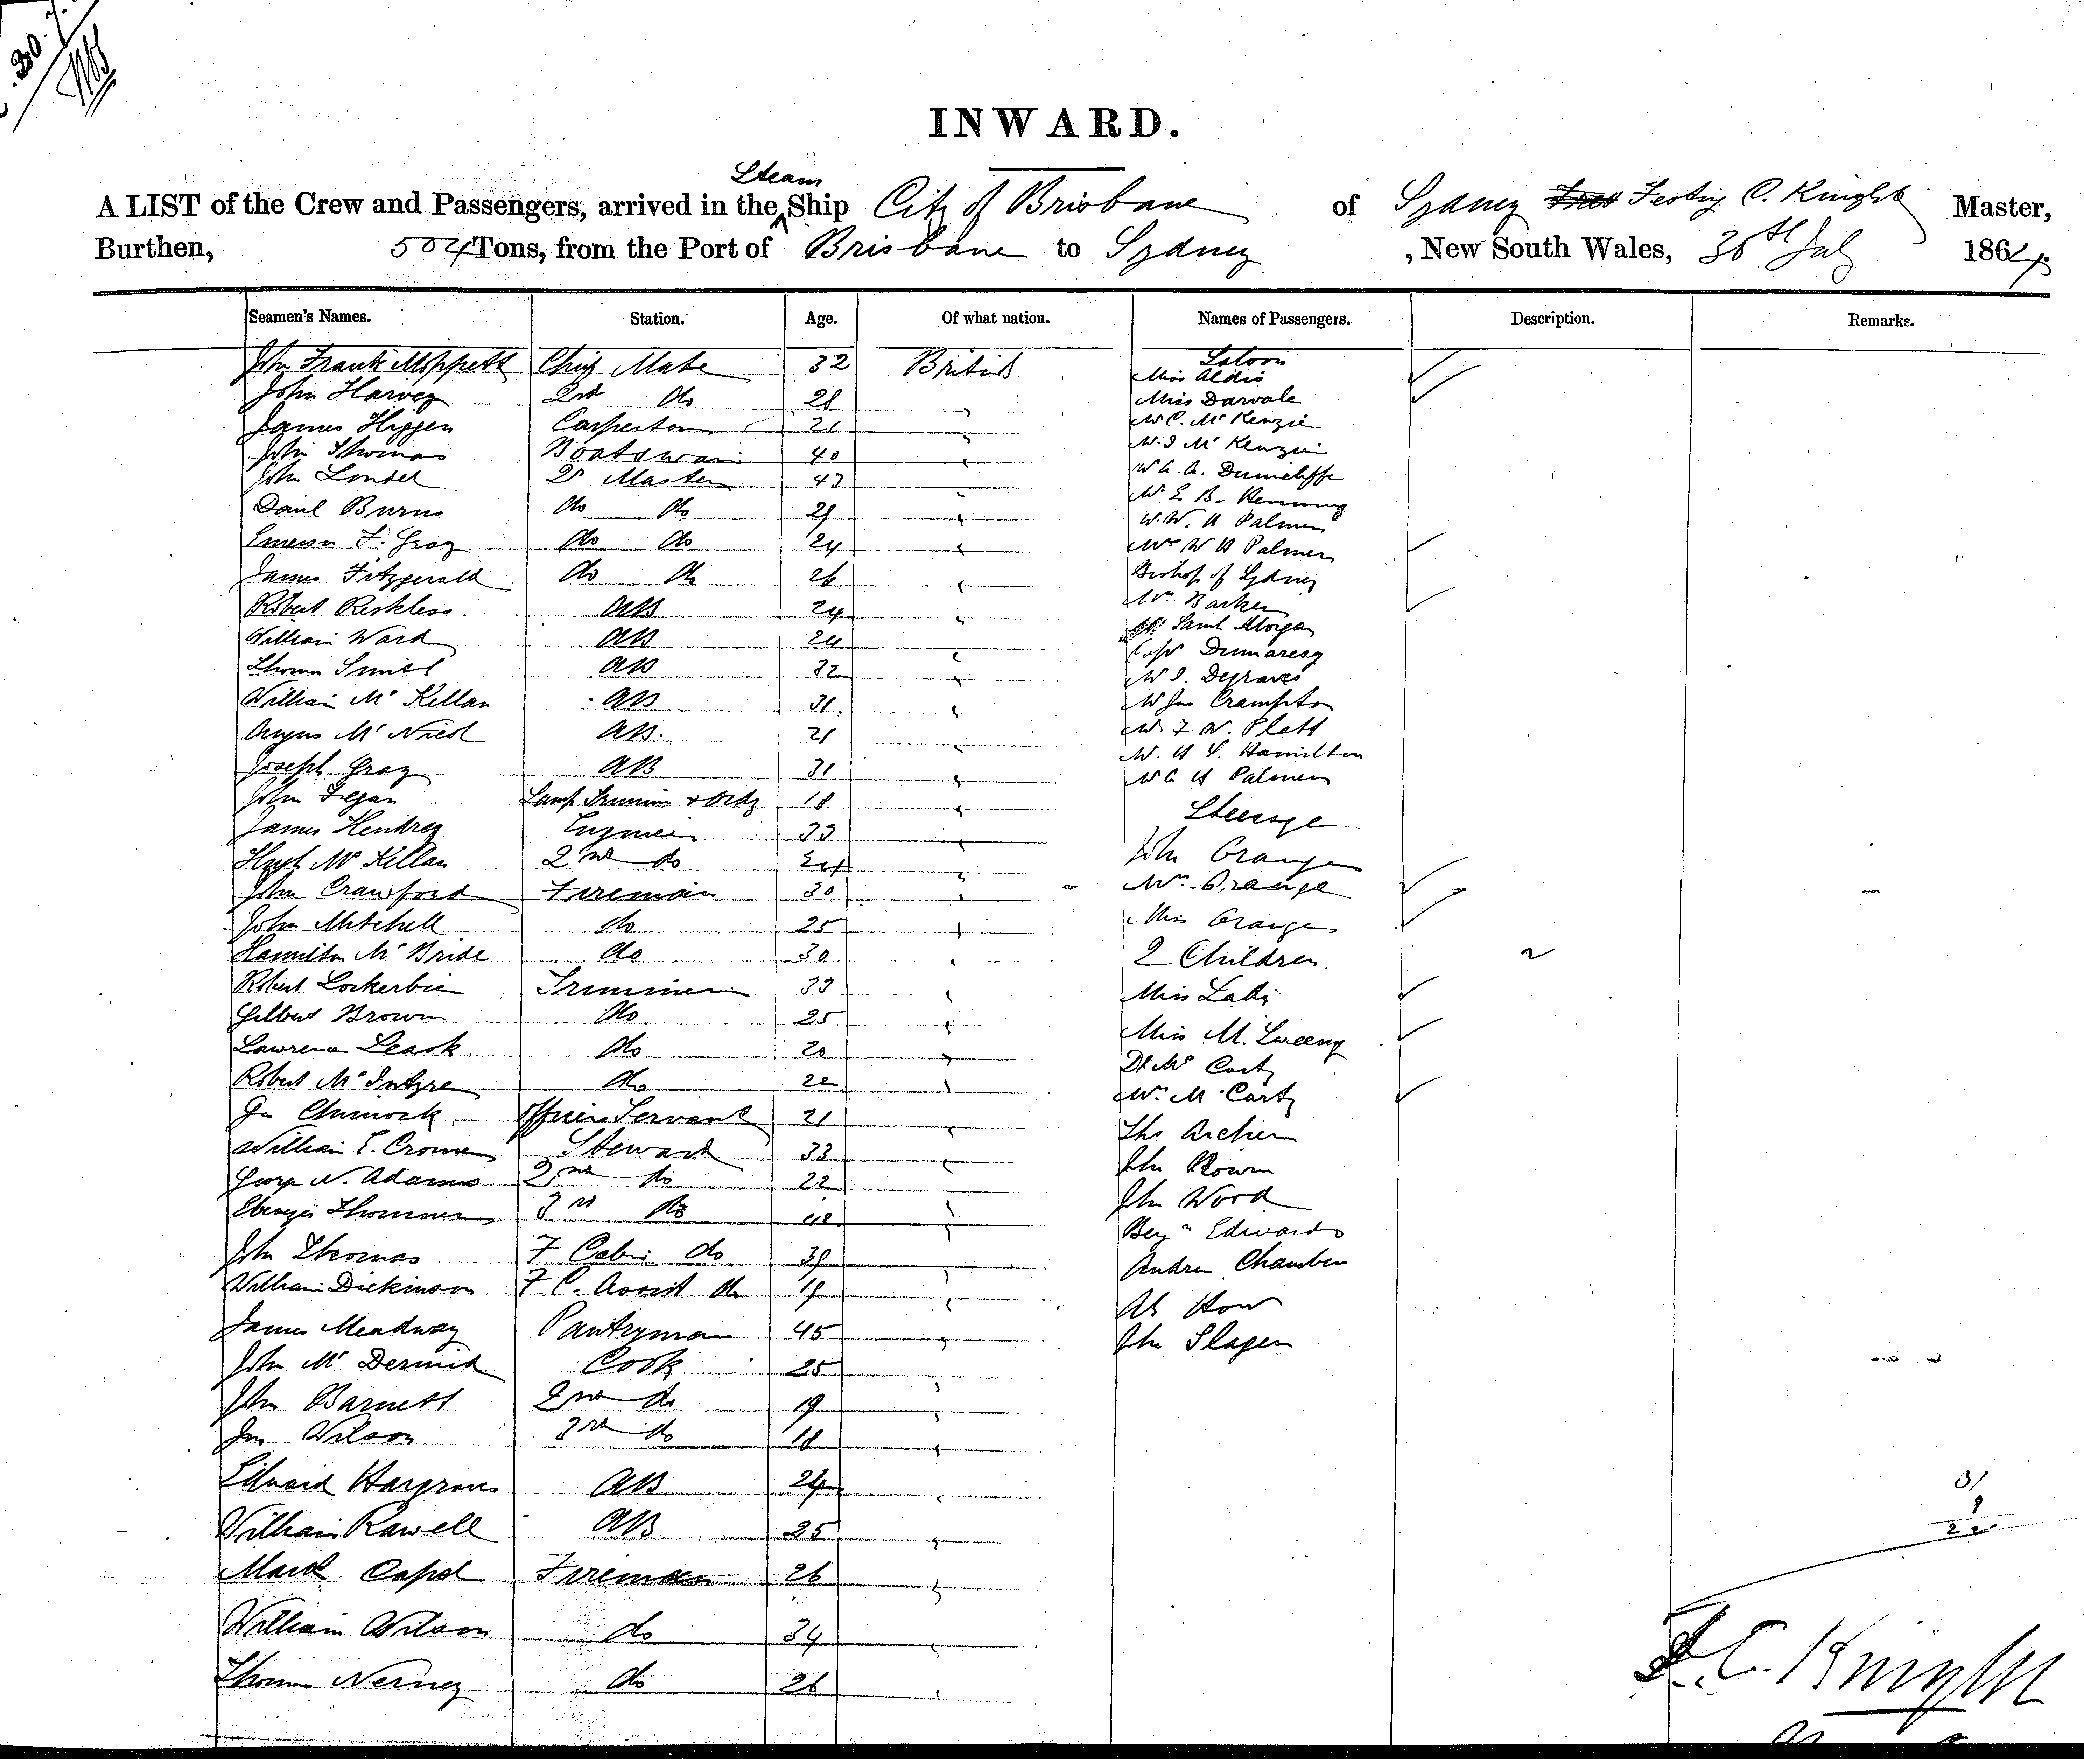 INWARD.
A LIST of the Crew and Passengers, arrived in the Steam Ship City of Brisbane of Sydney C. Knight Master,
Burthen, 504 Tons, from the Port of Brisbane to Sydney, New South Wales, 30th July 1864
Seamen's Names. Station. Age. Of what nation. Names of Passengers. Description. Remarks.
John Frank Moppett Chief Mate 32 British Saloon
Miss Aldis
John Harvey 2nd do 28 Miss Darvale
James Higgen Carpenter 21 Mr C. McKenzie
John Thomas Boatswain 40 Mr J McKenzie
John Loudel Qr Master 43 Mr A. A. Dumcliffe
Danl Burns do do 29 Mr E B. Henning
Emerson F. Gray do do 24 Mr W. H Palmer
Mrs W H Palmer
James Fitzgerald do do 26 Bishop of Sydney
Robert Reckless AB 24 Mrs Barker
William Ward AB 24 Mr Saml Morgan
Thomas AB 32 Capt Dumaresq
Mr J. Degraves
William McKellan AB 31 Mr Jno Crampton
Angus McNiel AB. 21 Mr F W. Platt
Mr. H. Hamilton
Joseph Gray AB 31 Mr C H Palmer
John Fegan Lamp Trimmer & Ordy 18 Steerage
James Hendrey Engineer 33
Hugh McKellan 2nd do 24 John Orange
John Crawford Fireman 30 Mrs Orange
John Mitchell do 25 Miss Orange
Hamilton McBride do 30 2 Children
Robert Lockerbie Trimmer 33 Miss
Gilbert Brown do 25 Miss M. Sweeny
Lawrence Leask do 20 Dl McCarty
Robert McIntyre do 22 Mrs McCarty
Jno Chimock Officers Servant 21 Thos Archer
William E. Crowne Steward 33 John
George N. Adams 2nd do 22 John Wood
Ebenezer 3rd do 48 Benjn Edwards
John Thomas F Cabin do 39 Andrew Chamber
William Dickinson F C. Assist do 19 Ah How
James Meadway Pantryman 45 John Slagen
John McDermid Cook 25
John Barnett 2nd do 19
Jno Wilson 3rd do 18
Edward Hargraves AB 24
William Rawell AB 25
Mark Capel Fireman 26
William Wilson do 34
Thomas Nerney do 26
31
C. Knight